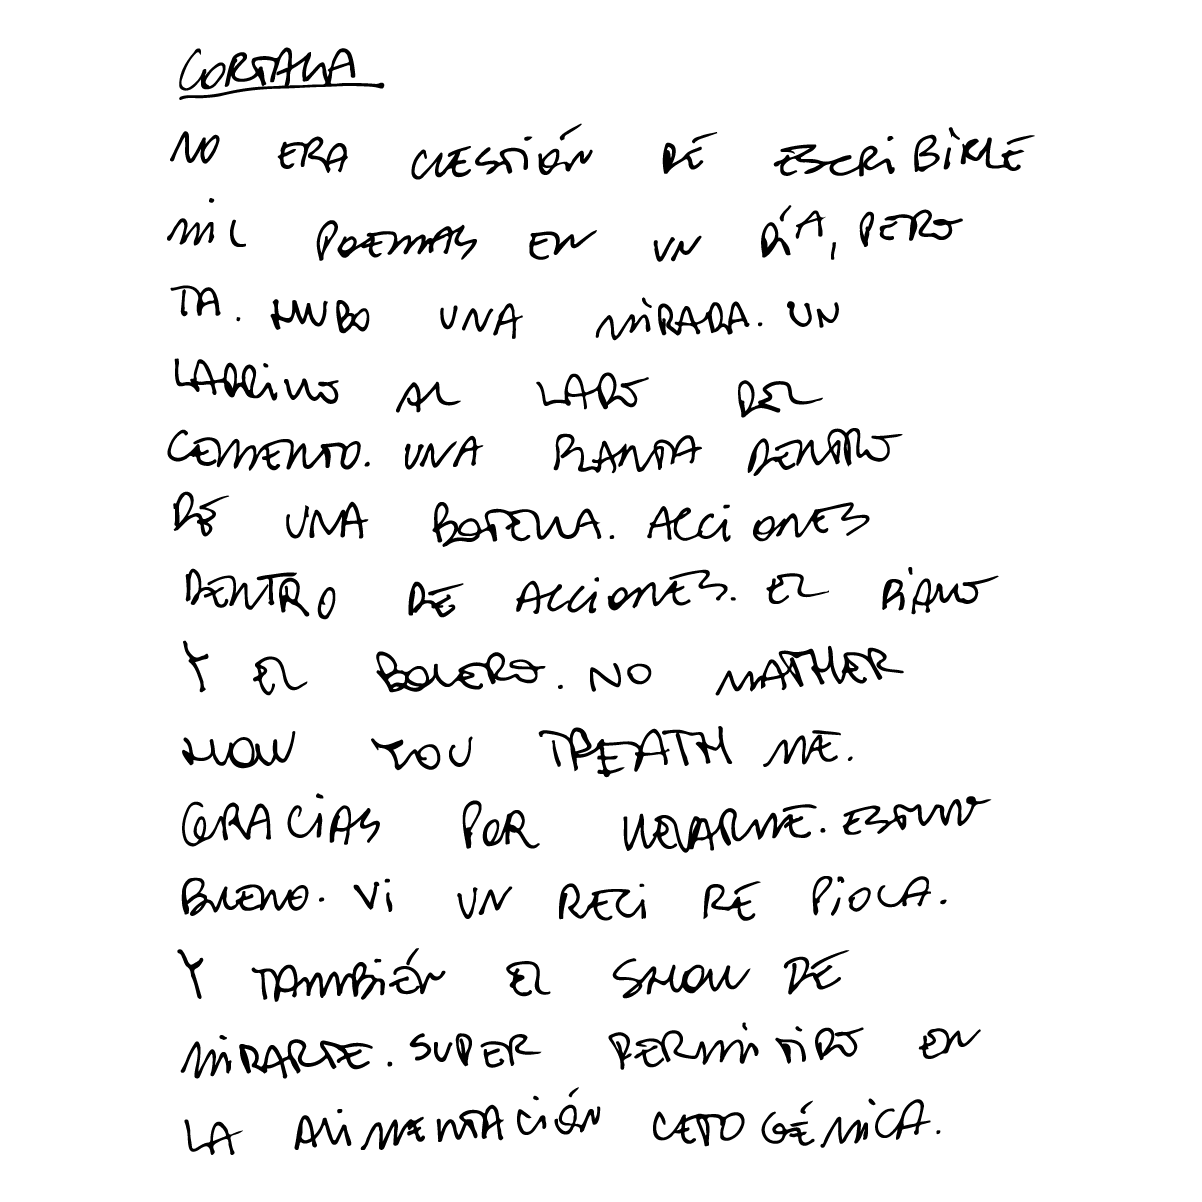 CORTALA
NO ERA CUESTIÓN DE ESCRIBIRLE
MIL POEMAS EN UN DÍA, PERO
TA. HUBO UNA MIRADA. UN
LADRILLO AL LADO DEL
CEMENTO. UNA PLANTA DENTRO
DE UNA BOTELLA. ACCIONES
DENTRO DE ACCIONES. EL PIANO
Y EL BOLERO. NO MATHER
HOW YOU TREATH ME.
GRACIAS POR LLEVARME. ESTUVO
BUENO. VI UN RECI RE PIOLA.
Y TAMBIÉN EL SHOW DE
MIRARTE. SUPER PERMITIDO EN
LA ALIMENTACIÓN CETOGÉNICA.